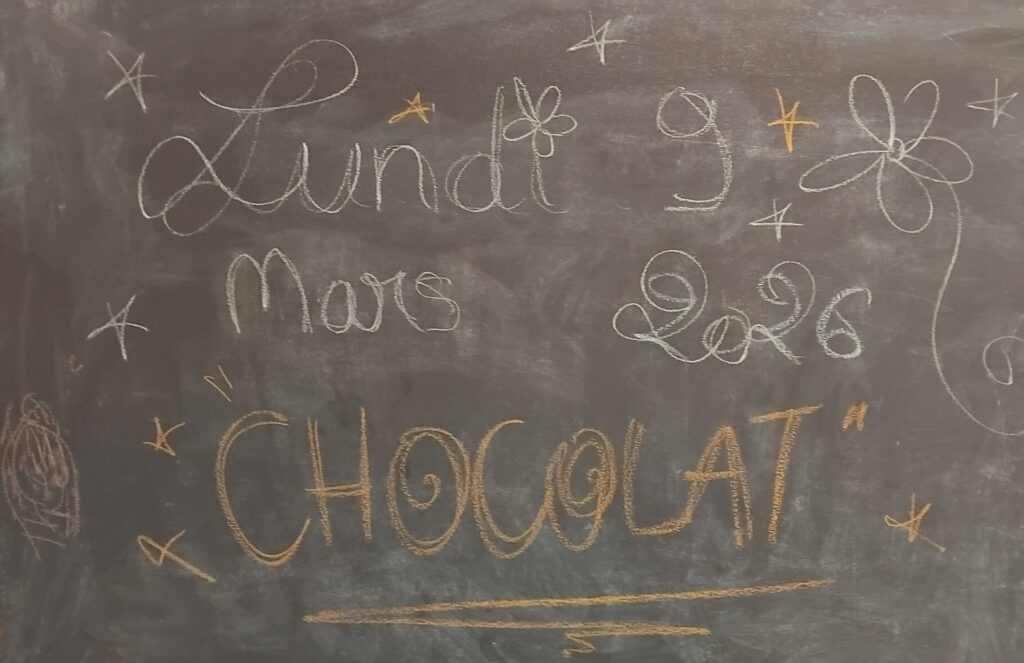 Lundi 9
Mars 2026
"CHOCOLAT"